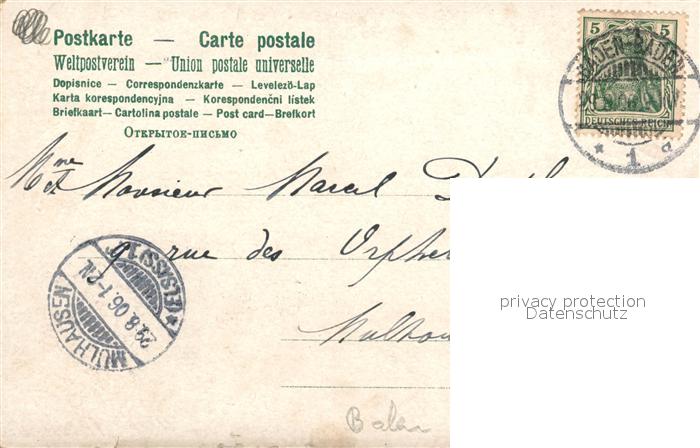 Postkarte — Carte postale
Weltpostverein — Union postale universelle
Dopisnice — Correspondenzkarte — Levelező-Lap
Karta korespondencyjna — Korespondenční lístek
Briefkaart — Cartolina postale — Post card — Brefkort
ОТКРЫТОЕ-ПИСЬМО
5 5
DEUTSCHES REICH
BADEN-BADEN
* 1 d
Mme et Monsieur Marcel
9 rue des
MÜLHAUSEN
29.8.06.1-2N.
*(ELSASS)1
privacy protection
Datenschutz
Baden